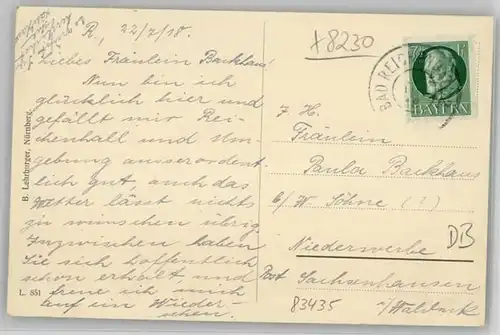 R., 22/7/18.
Liebes Fräulein Backhaus!
Nun bin ich
glücklich hier und
gefällt mir Rei-
chenhall und Um-
gebung ausserordent-
lich gut, auch das
Wetter lässt nichts
zu wünschen übrig
Inzwischen haben
Sie sich hoffentlich
schon erholt, und
freue ich mich
auf ein Wieder-
sehen.
B. Lehrburger, Nürnberg.
L. 851
+8230
BAD REIC
7½ PF
BAYERN
Fräulein
Paula Backhaus
b/W. Söhne (?)
Niederwerbe
DB
Post Sachsenhausen
83435
i/Waldeck